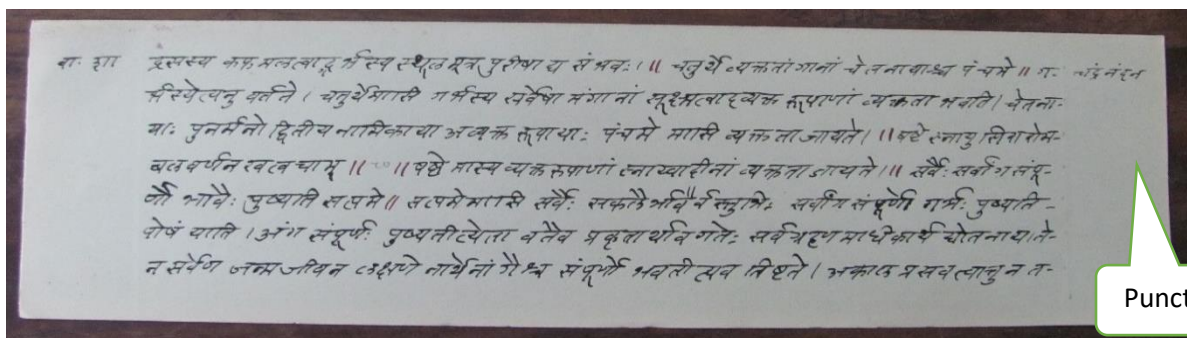 वा. शा प्रसस्य कफ मलत्वाद्गर्भस्य स्थूल मूत्र पुरीषा य संभवः। ॥ चतुर्थे व्यक्ततांगानां चेतनायाश्च पंचमे ॥ ग- चंद्रनंदन
र्भस्येत्यनु वर्तते। चतुर्थेमासि गर्भस्य सर्वेषा मंगानां सूक्ष्मत्वादव्यक्त रूपाणां व्यक्तता भवति। चेतना-
याः पुनर्मनो द्वितीय नामिकाया अव्यक्त रूपायाः पंचमे मासि व्यक्त ता जायते। ॥षष्टे स्नायु सिरारोम-
बलवर्णनखत्वचाम् ॥ ॥षष्ठे मास्य व्यक्त रूपाणां स्नाय्वादीनां व्यक्तता जायते।॥ सर्वैः सर्वांगसंपू-
र्णो भावैः पुष्यति सप्तमे॥ सप्तमेमासि सर्वैः सकलैर्भावैर्वस्तुभिः सर्वांग संपूर्णो गर्भः पुष्यति-
पोषं याति।अंग संपूर्णः पुष्यतीत्येता वतैव प्रकृतार्थाव गतेः सर्वग्रहण माधिकार्थ द्योतनाय।ते-
न सर्वेण जन्म जीवन लक्षणे नार्थेनां गैश्च संपूर्णो भवतीत्यव तिष्टते। अकाल प्रसवत्वात्तु न त-
Punct